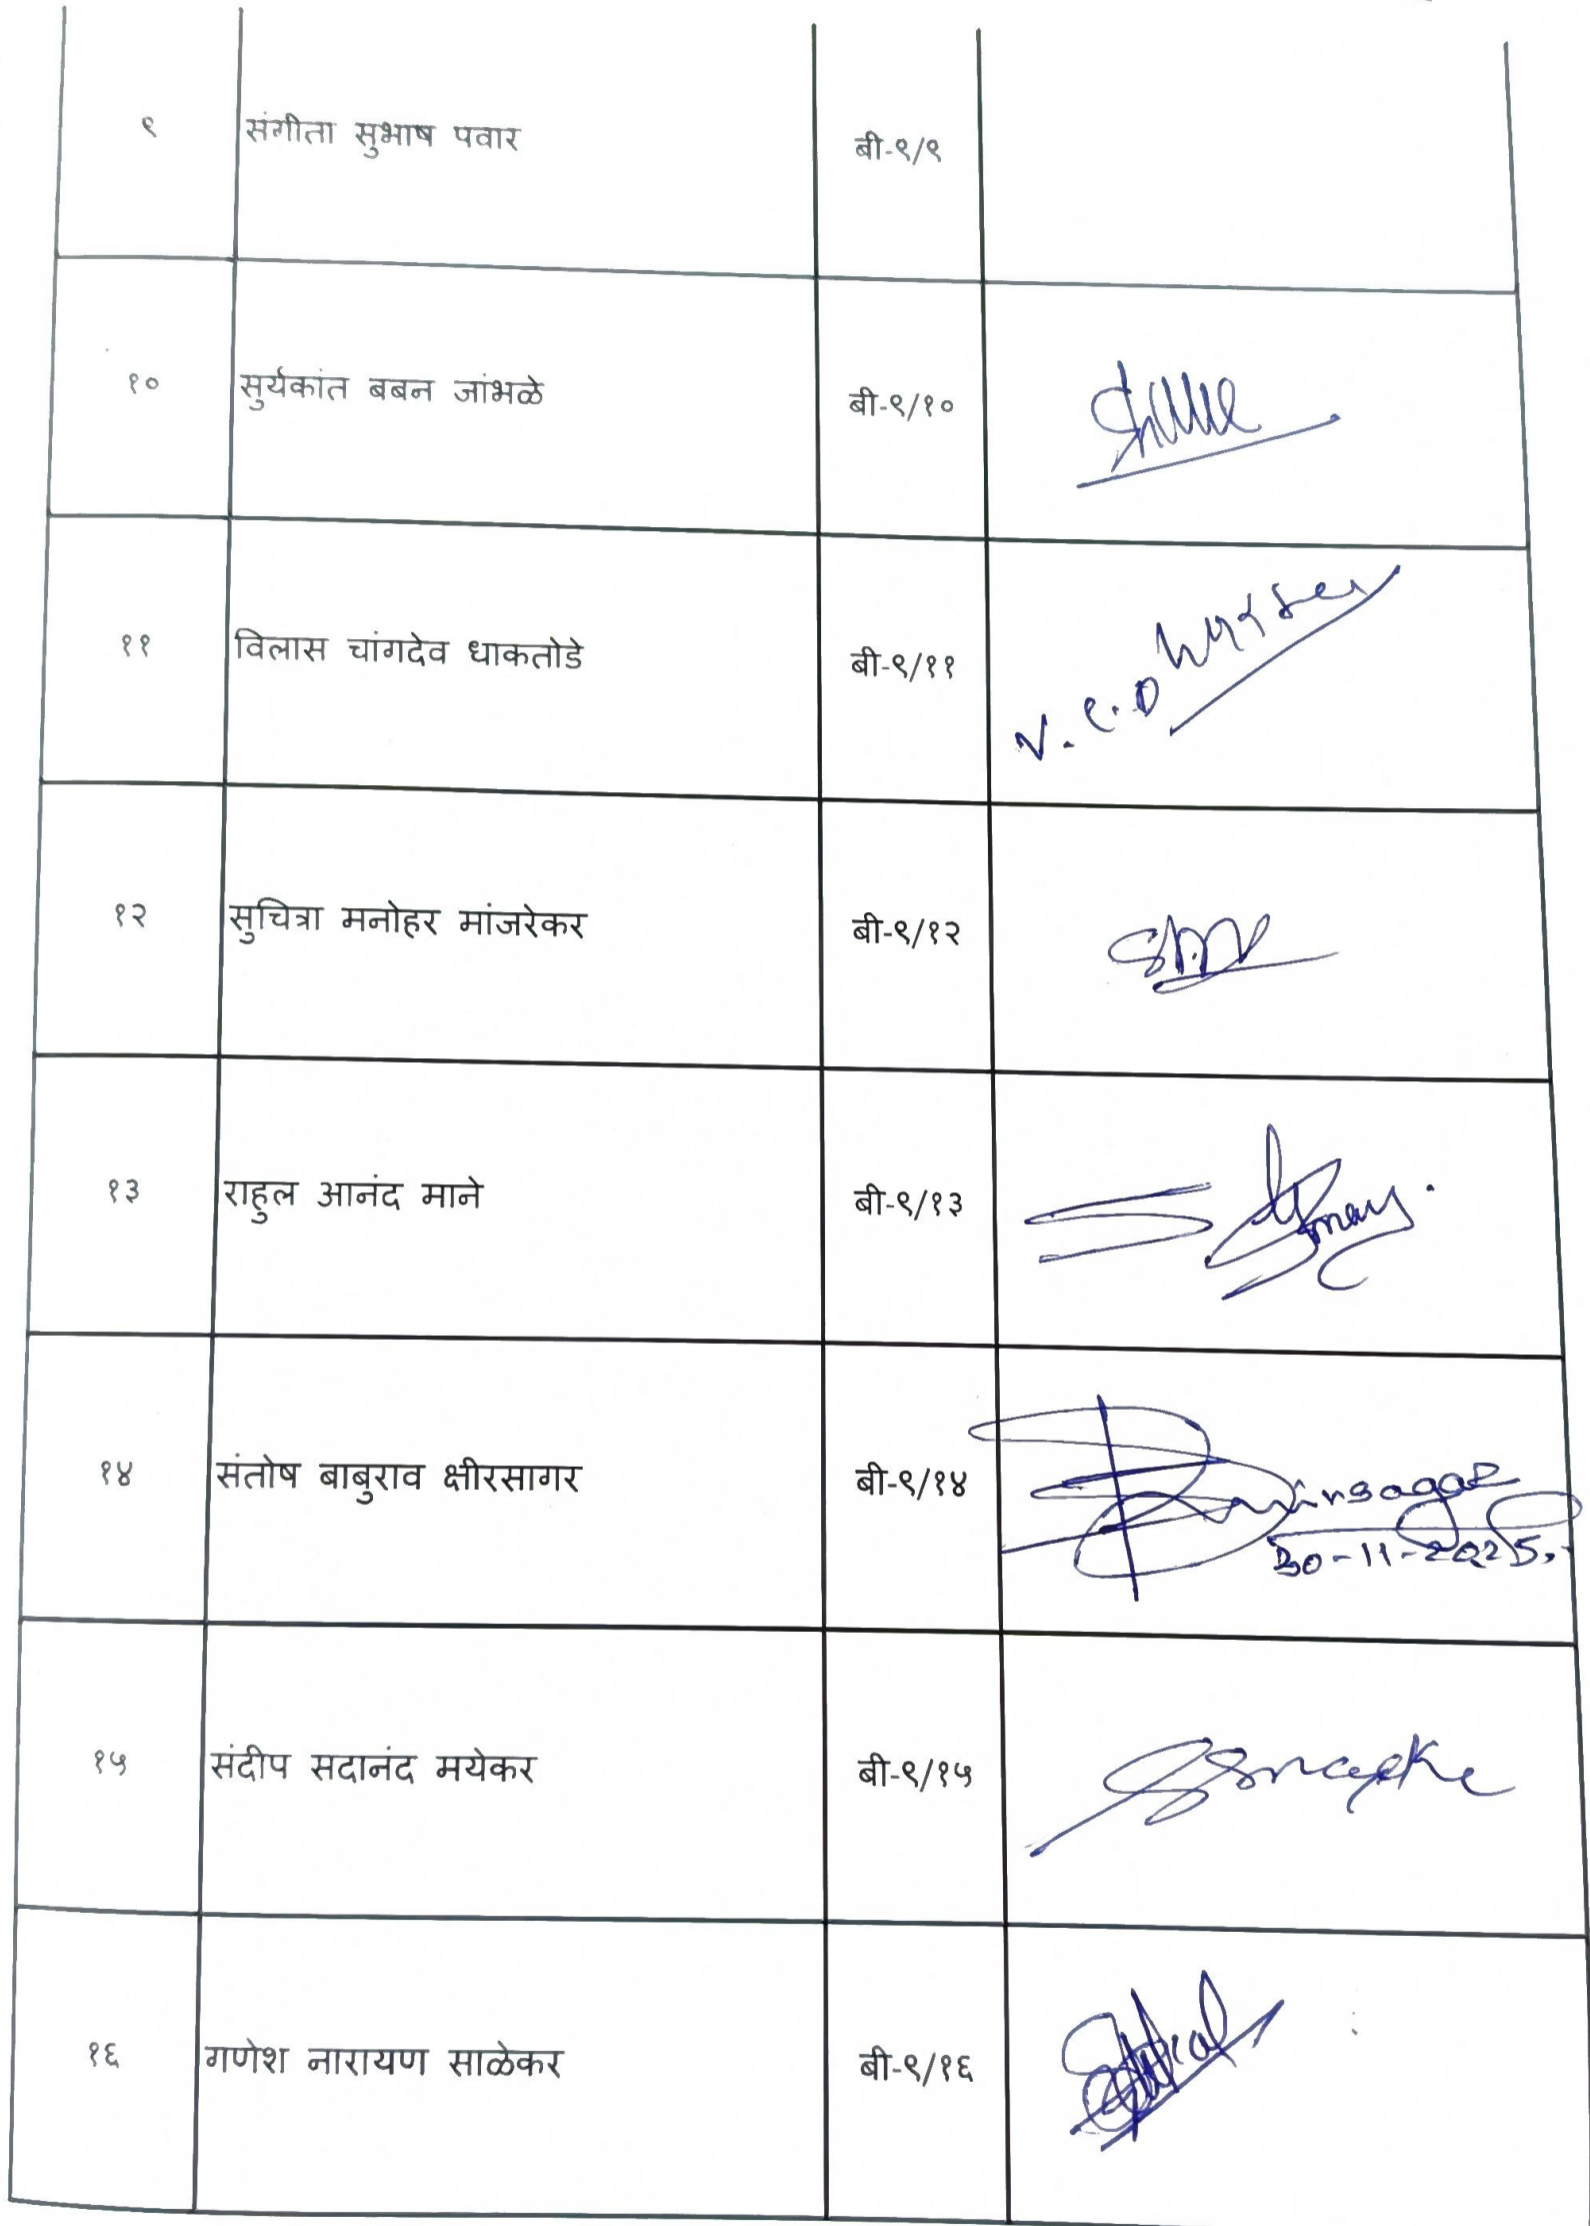 ९ संगीता सुभाष पवार बी-९/९
१० सुर्यकांत बबन जांभळे बी-९/१०
११ विलास चांगदेव धाकतोडे बी-९/११
V. C. D
१२ सुचित्रा मनोहर मांजरेकर बी-९/१२
१३ राहुल आनंद माने बी-९/१३
१४ संतोष बाबुराव क्षीरसागर बी-९/१४
30-11-2025.
१५ संदीप सदानंद मयेकर बी-९/१५
१६ गणेश नारायण साळेकर बी-९/१६